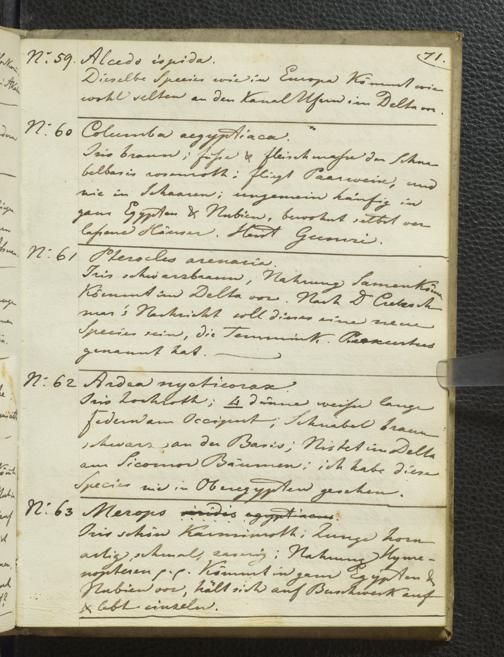 71.
No. 59. Alcedo ispida.
Dieselbe Species wie in Europa Kömmt wie-
wohl selten an den Kanal Ufern im Delta vor.
No. 60 Columba aegyptiaca.
Iris braun; füße & fleischmaße der Schna-
belbasis rosenroth; fliegt Paarweise, und
nie in Schaaren; ungemein häufig in
ganz Egypten & Nubien, bewohnt selbst ver
laßene Häuser. Heist Gumri.
No. 61 Pterocles arenaria.
Iris schwarzbraun, Nahrung Samenkörn
Kömmt im Delta vor. Nach Dr Cretzsch
mar's Nachricht soll dieses eine neue
Species sein, die Temmink
genannt hat.
No. 62 Ardea nycticorax.
Iris hochroth; 4 dünne weiße lange
federn am Occiput; Schnabel braun
schwarz an der Basis; Nistet im Delta
am Sicomor Bäumen; ich habe diese
Species nie in Oberegypten gesehen.
No. 63 Merops viridis egyptiacus.
Iris schön Karminroth; Zunge horn
artig, schmal, zaserig; Nahrung Hyme-
nopteren p. p. Kömmt in ganz Egypten &
Nubien vor, hält sich auf Buschwerk auf
& lebt einzeln.